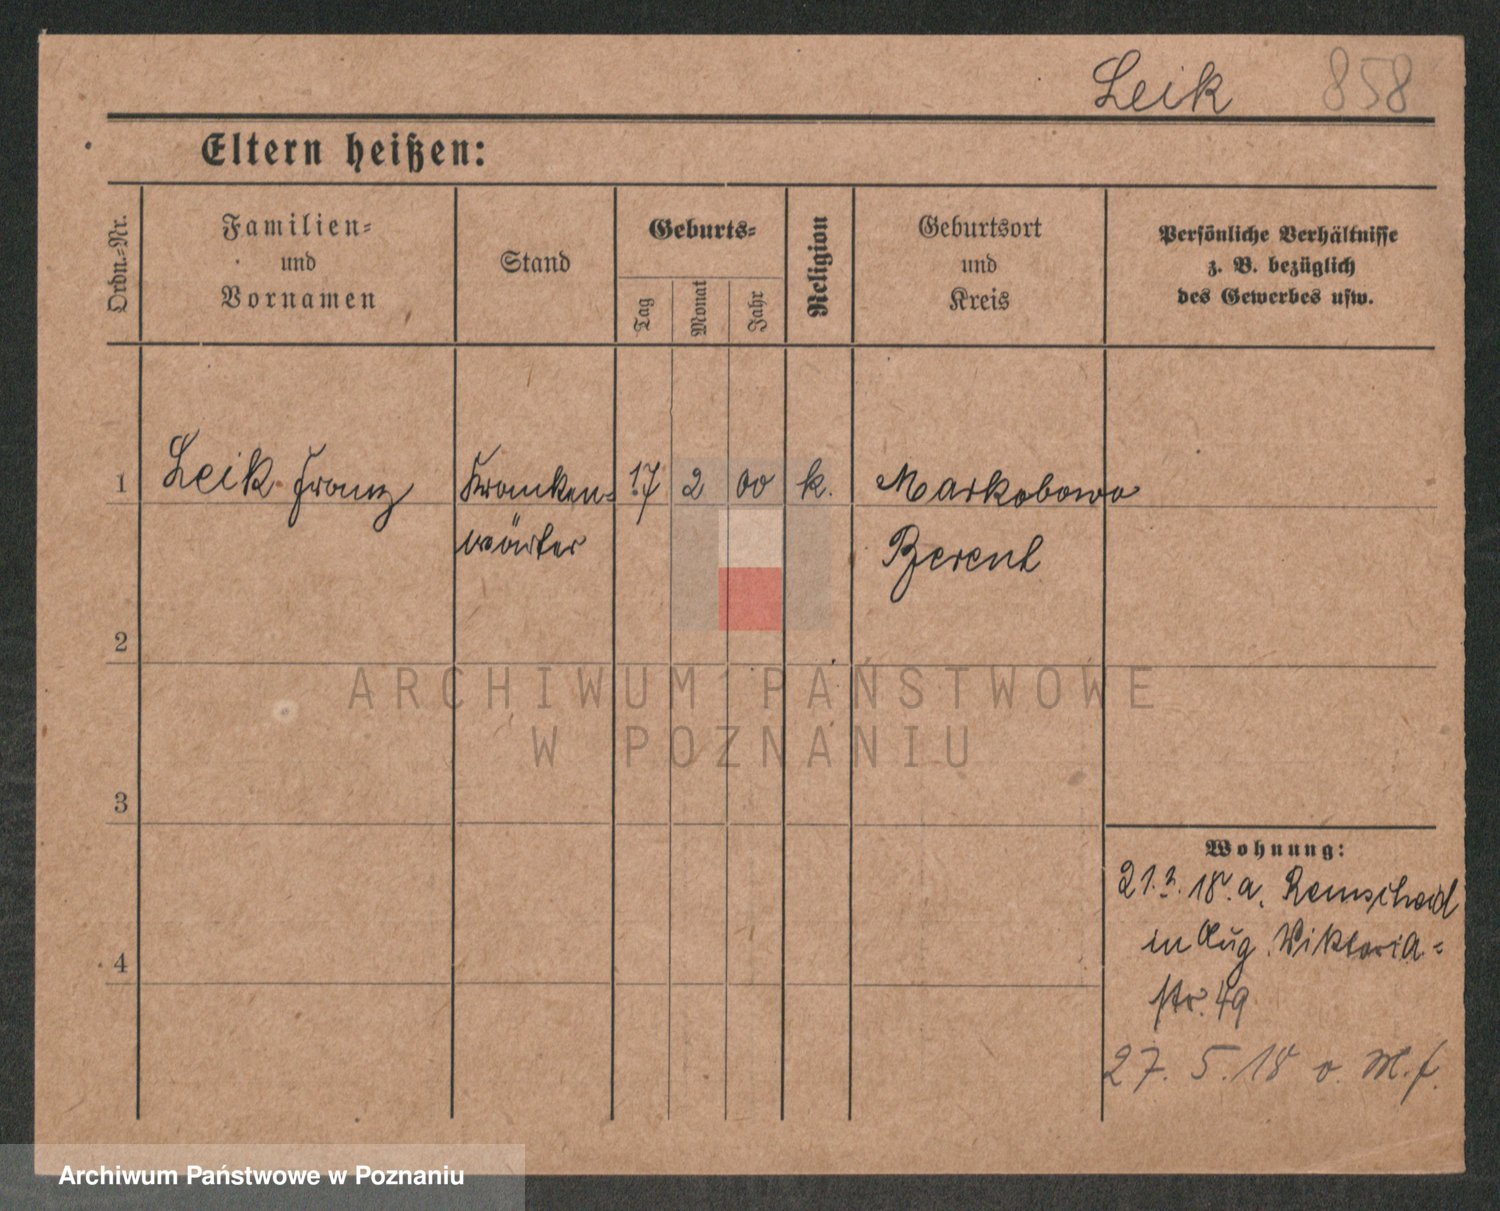 Leik 858
Eltern heißen:
Ordn.-Nr.
Familien-
und
Vornamen
Stand
Geburts-
Tag
Monat
Jahr
Religion
Geburtsort
und
Kreis
Persönliche Verhältnisse
z. B. bezüglich
des Gewerbes usw.
1 Leik Franz Kranken- 17 2 00 k. Markobowo
wärter Berent
2
ARCHIWUM PAŃSTWOWE
W POZNANIU
3
Wohnung:
21.3.18. a. Remscheid
in Aug. Viktoria-
4
str. 49
27. 5. 18 v. M. f.
Archiwum Państwowe w Poznaniu